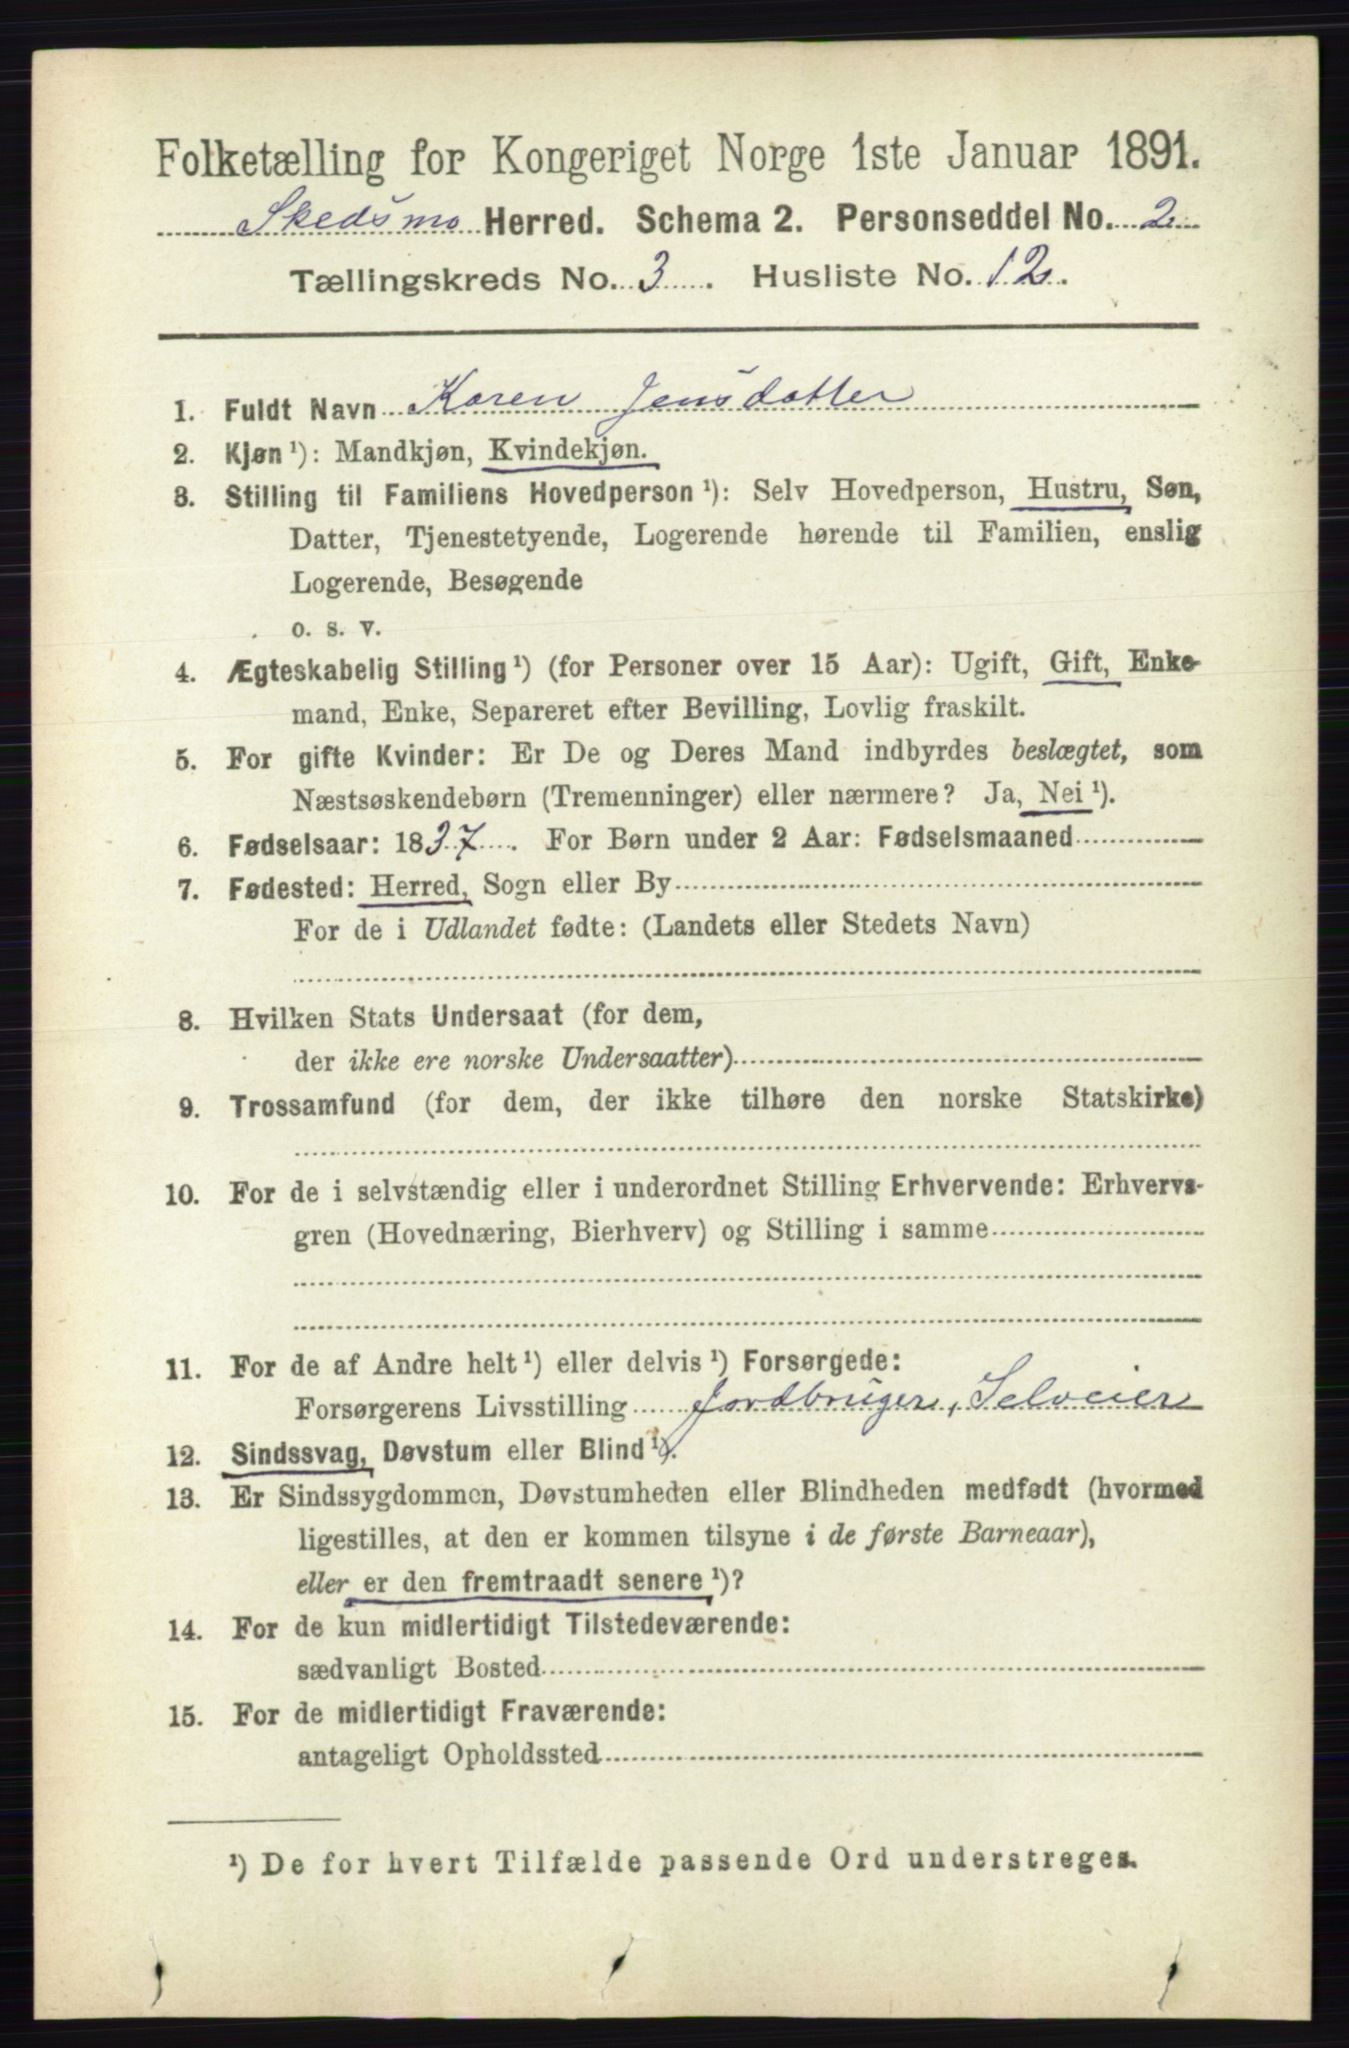 Folketælling for Kongeriget Norge 1ste Januar 1891.
Skedsmo Herred. Schema 2. Personseddel No. 2
Tællingskreds No. 3. Husliste No. 12.
1. Fuldt Navn Karen Jensdatter
2. Kjøn ¹): Mandkjøn, Kvindekjøn.
3. Stilling til Familiens Hovedperson ¹): Selv Hovedperson, Hustru, Søn,
Datter, Tjenestetyende, Logerende hørende til Familien, enslig
Logerende, Besøgende
o. s. v.
4. Ægteskabelig Stilling ¹) (for Personer over 15 Aar): Ugift, Gift, Enke-
mand, Enke, Separeret efter Bevilling, Lovlig fraskilt.
5. For gifte Kvinder: Er De og Deres Mand indbyrdes beslægtet, som
Næstsøskendebørn (Tremenninger) eller nærmere? Ja, Nei ¹).
6. Fødselsaar: 1837. For Børn under 2 Aar: Fødselsmaaned
7. Fødested: Herred, Sogn eller By
For de i Udlandet fødte: (Landets eller Stedets Navn)
8. Hvilken Stats Undersaat (for dem,
der ikke ere norske Undersaatter)
9. Trossamfund (for dem, der ikke tilhøre den norske Statskirke)
10. For de i selvstændig eller i underordnet Stilling Erhvervende: Erhvervs-
gren (Hovednæring, Bierhverv) og Stilling i samme
11. For de af Andre helt ¹) eller delvis ¹) Forsørgede:
Forsørgerens Livsstilling Jordbruger, Selveier
12. Sindssvag, Døvstum eller Blind ¹).
13. Er Sindssygdommen, Døvstumheden eller Blindheden medfødt (hvormed
ligestilles, at den er kommen tilsyne i de første Barneaar),
eller er den fremtraadt senere ¹)?
14. For de kun midlertidigt Tilstedeværende:
sædvanligt Bosted
15. For de midlertidigt Fraværende:
antageligt Opholdssted
¹) De for hvert Tilfælde passende Ord understreges.